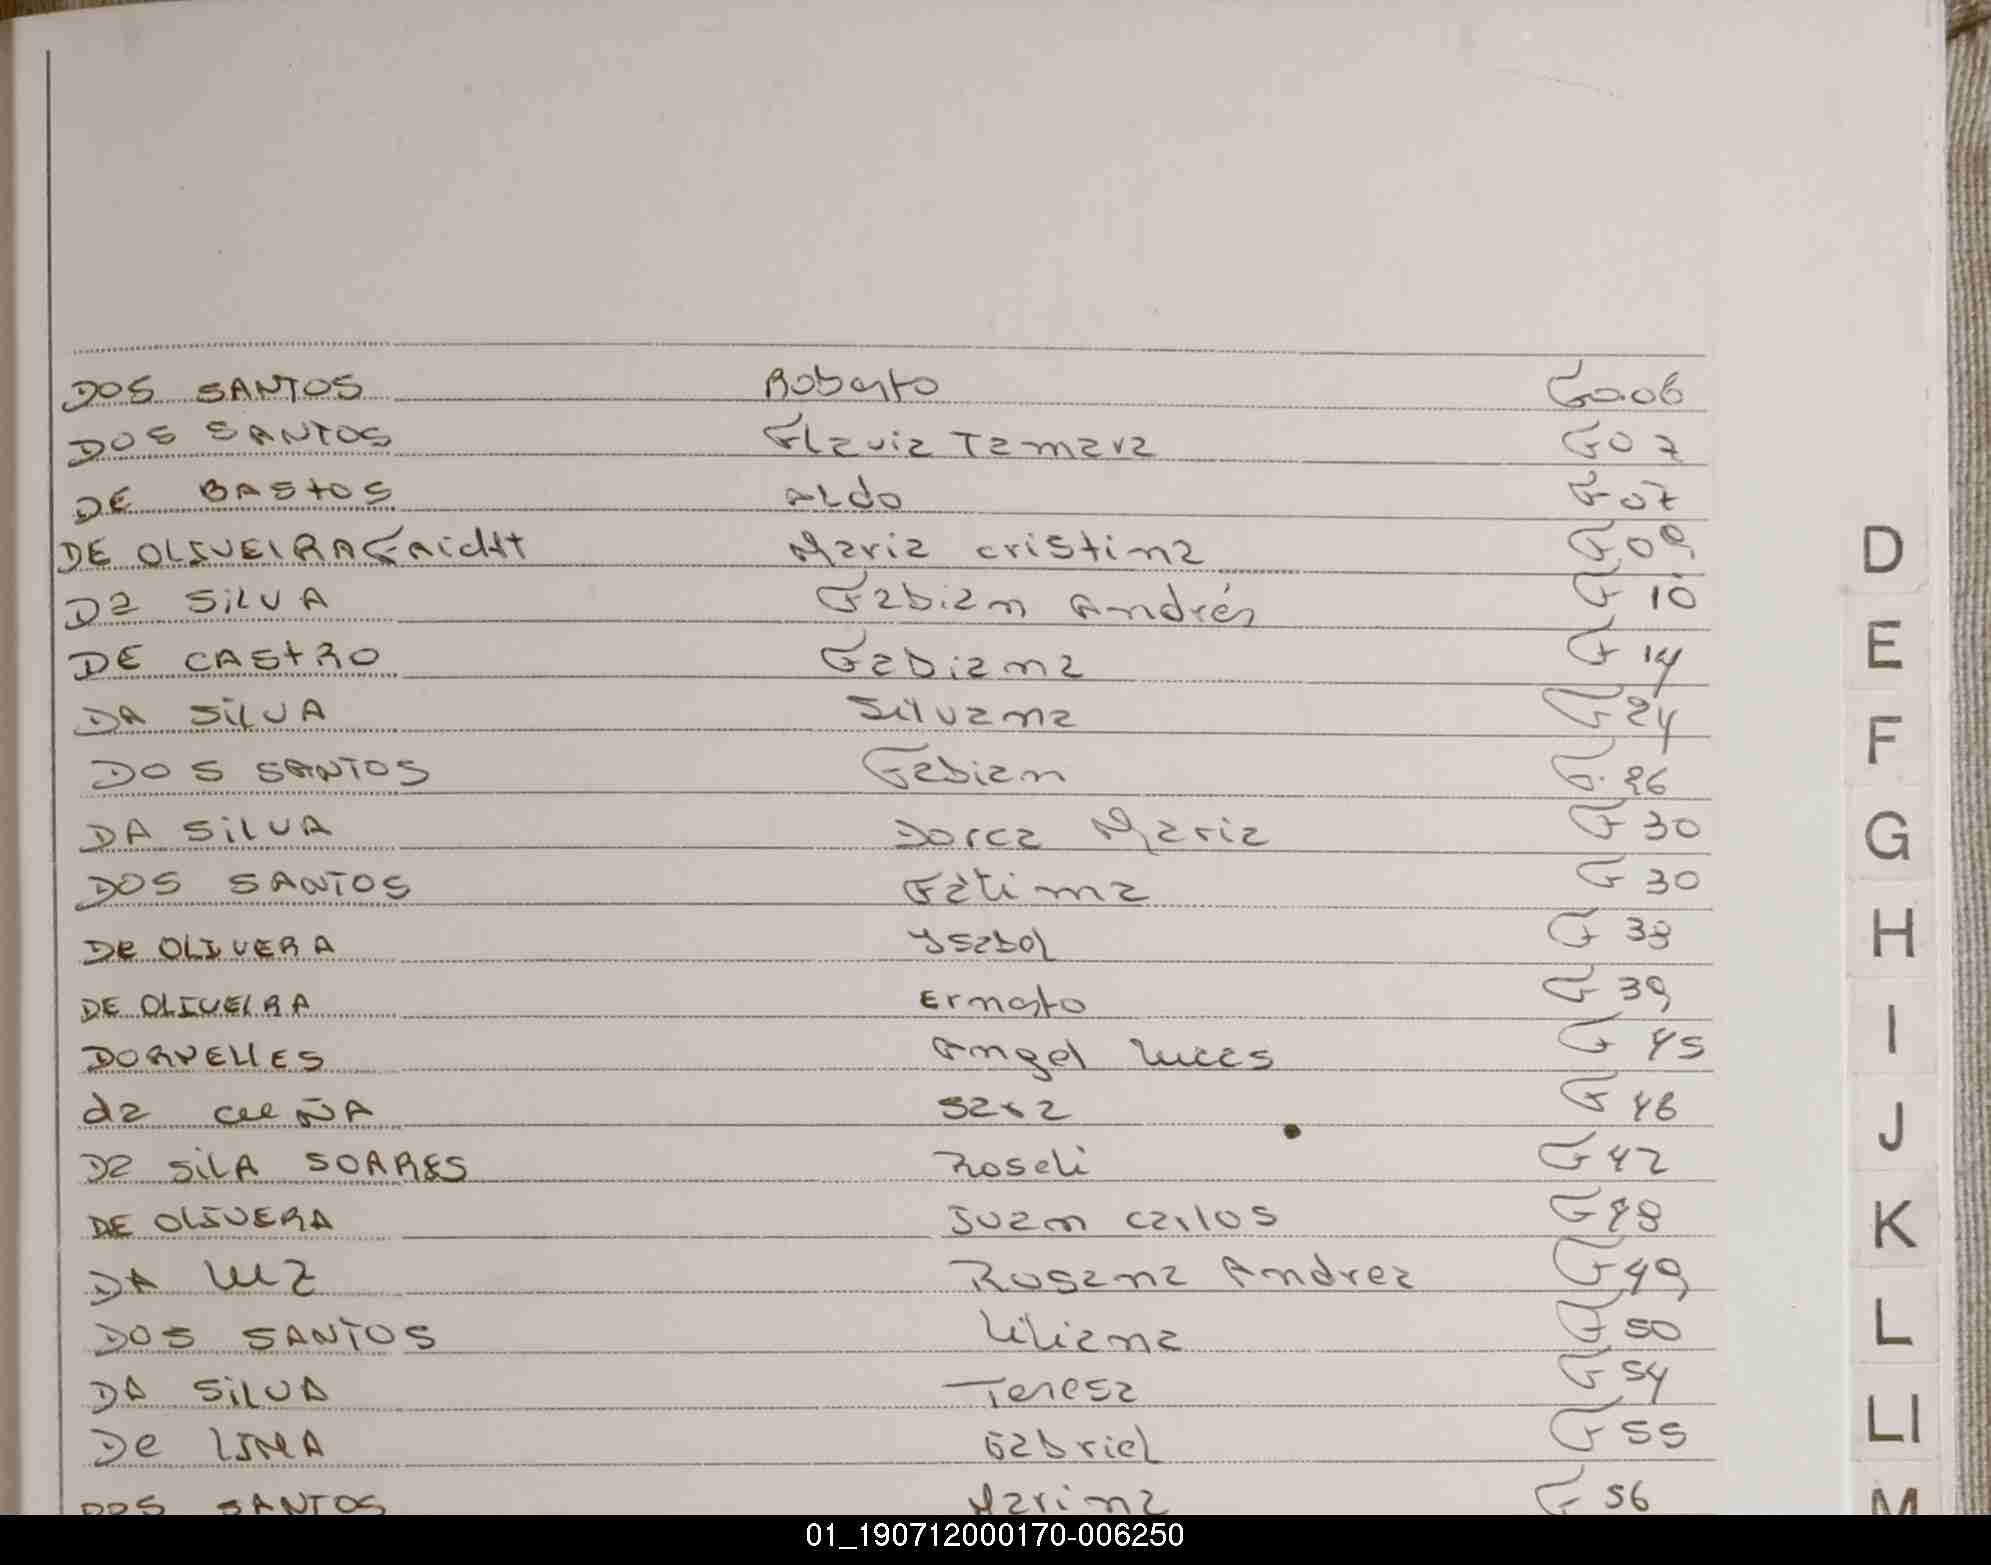 DOS SANTOS Roberto Fo.06
DOS SANTOS Flavia Tamara F07
DE BASTOS ALdo F07
DE OLIVEIRA Maria cristina F09
Da SILVA Fabian Andrés F 10
DE CASTRO Fabiana F 14
DA SILVA Silvana F24
DOS SANTOS Fabian F. 26
DA SILVA Dorca Maria F 30
DOS SANTOS Fátima F 30
De OLIVERA Ysabel F 38
DE OLIVEIRA Ernesto F 39
DORNELLES Angel Lucas F 45
da CUÑA Sara F 46
Da SILA SOARES Roseli F 47
DE OLIVERA Juan Carlos F48
DA LUZ Rosana Andrea F49
DOS SANTOS Liliana F 50
DA SILVA Teresa F 54
De LIMA Gabriel F 55
DOS SANTOS Marina F 56
D
E
F
G
H
I
J
K
L
LI
M
01_190712000170-006250